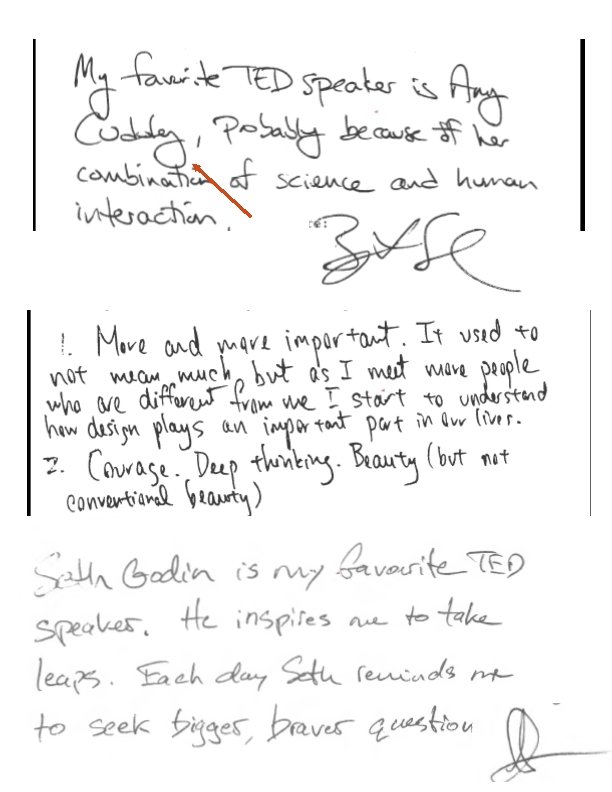 My favorite TED speaker is Amy
Cuddey, Probably because of her
combination of science and human
interaction.
1. More and more important. It used to
not mean much, but as I meet more people
who are different from me I start to understand
how design plays an important part in our lives.
2. Courage. Deep thinking. Beauty (but not
conventional beauty)
Seth Godin is my favourite TED
speaker. He inspires me to take
leaps. Each day Seth reminds me
to seek bigger, braver question